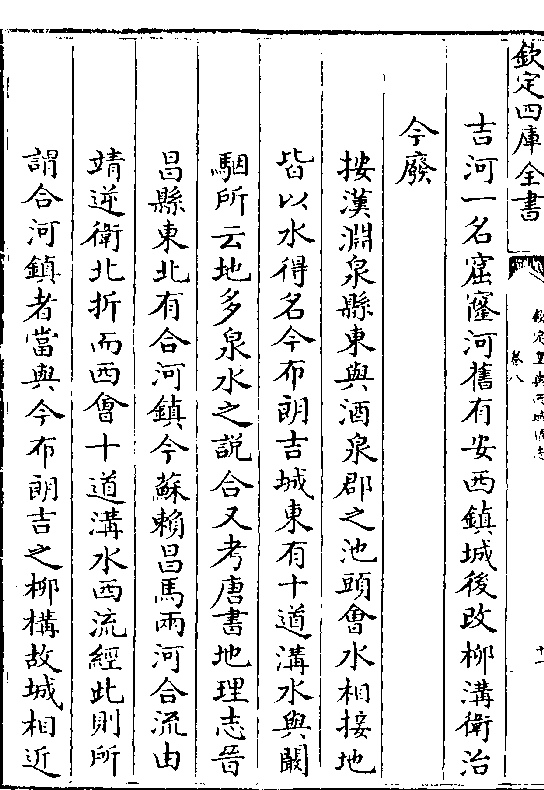 欽定四庫全書
欽定皇輿西域圖志
卷八
十一
吉河一名窟窿河舊有安西鎮城後改柳溝衛治
今廢
按漢淵泉縣東與酒泉郡之池頭會水相接地
皆以水得名今布朗吉城東有十道溝水與闞
駰所云地多泉水之説合又考唐書地理志晉
昌縣東北有合河鎮今蘇賴昌馬兩河合流由
靖逆衛北折而西會十道溝水西流經此則所
謂合河鎮者當與今布朗吉之柳構故城相近